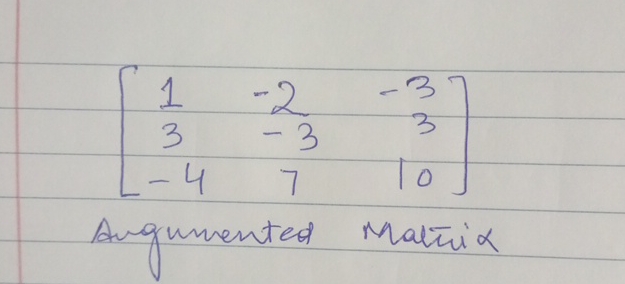 1 -2 -3
3 -3 3
-4 7 10
Augumented Matrix